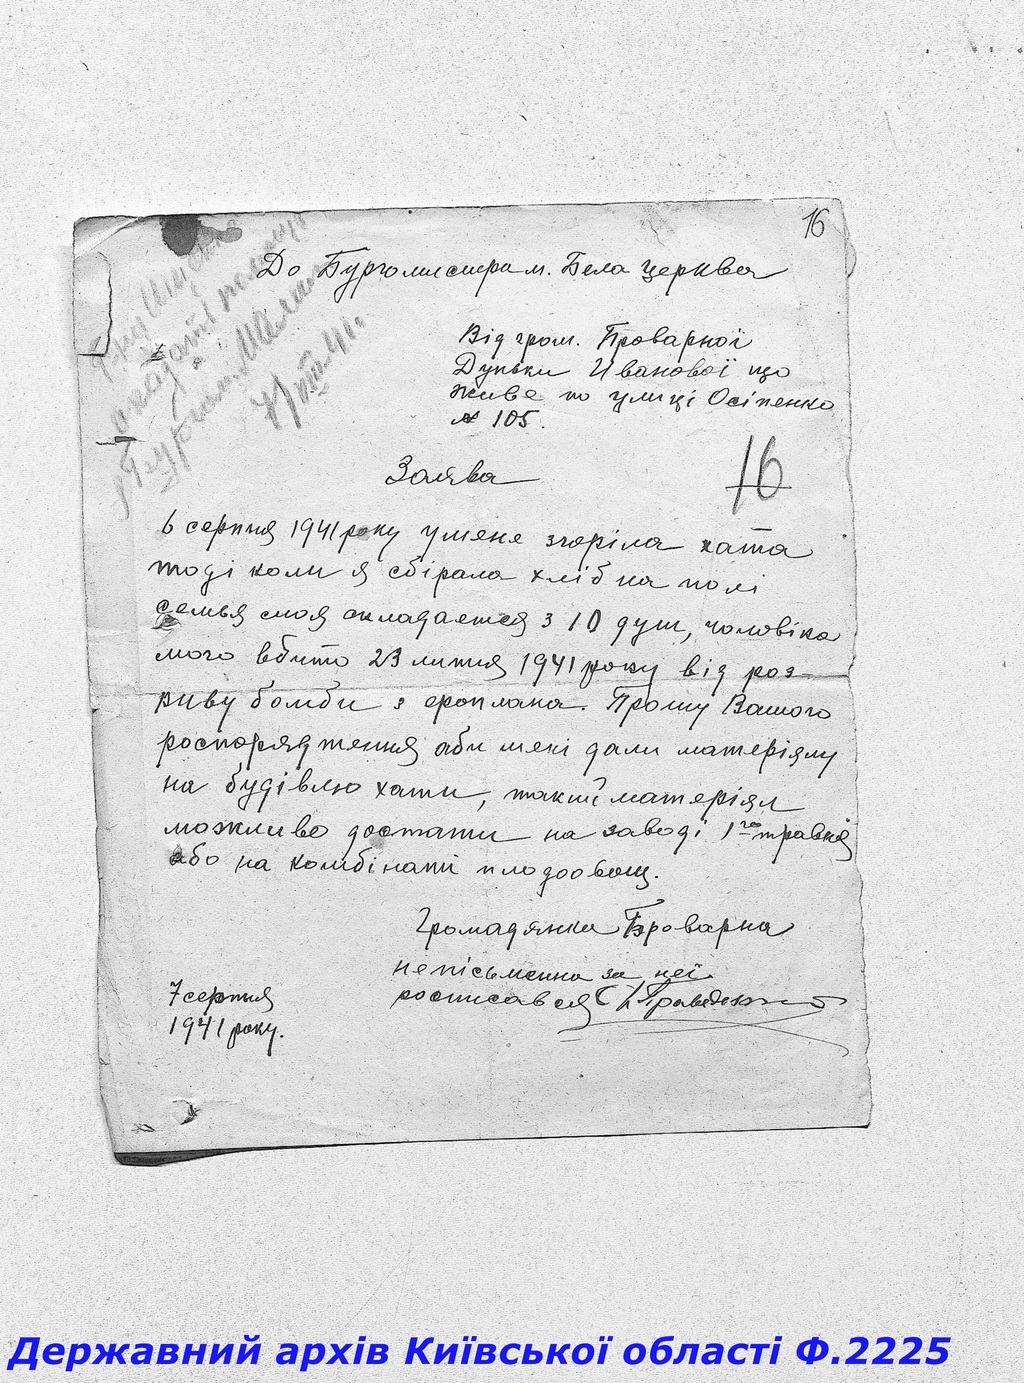 16
До Бургомистра м. Бела церква
Від гром. Проварної
Дуньки Иванової що
живе по улиці Осіпенко
№ 105.
Заява
16
6 серпня 1941 року у мене згоріла хата
тоді коли я сбірала хліб на полі
семья моя складается з 10 душ, чоловіка
мого вбито 23 липня 1941 року від роз-
риву бомби з ероплана. Прошу Вашого
роспорядження аби мені дали матеріялу
на будівлю хати, такий матеріял
можливо достати на заводі 1го травня
або на комбінаті плодоовощ.
Громадянка Проварна
неписьменна за неї
росписався
7 серпня
1941 року.
Державний архів Київської області Ф.2225